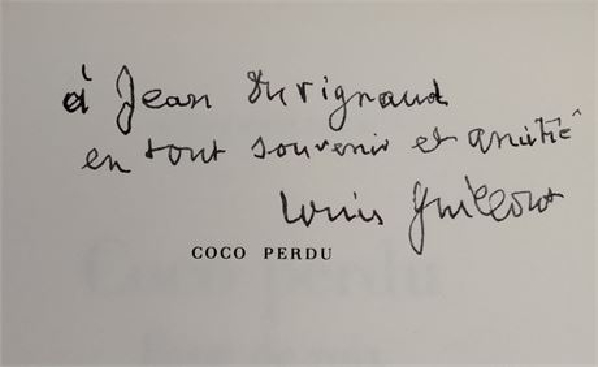 à Jean Duvignaud
en tout souvenir et amitié
Louis Guilloux
COCO PERDU